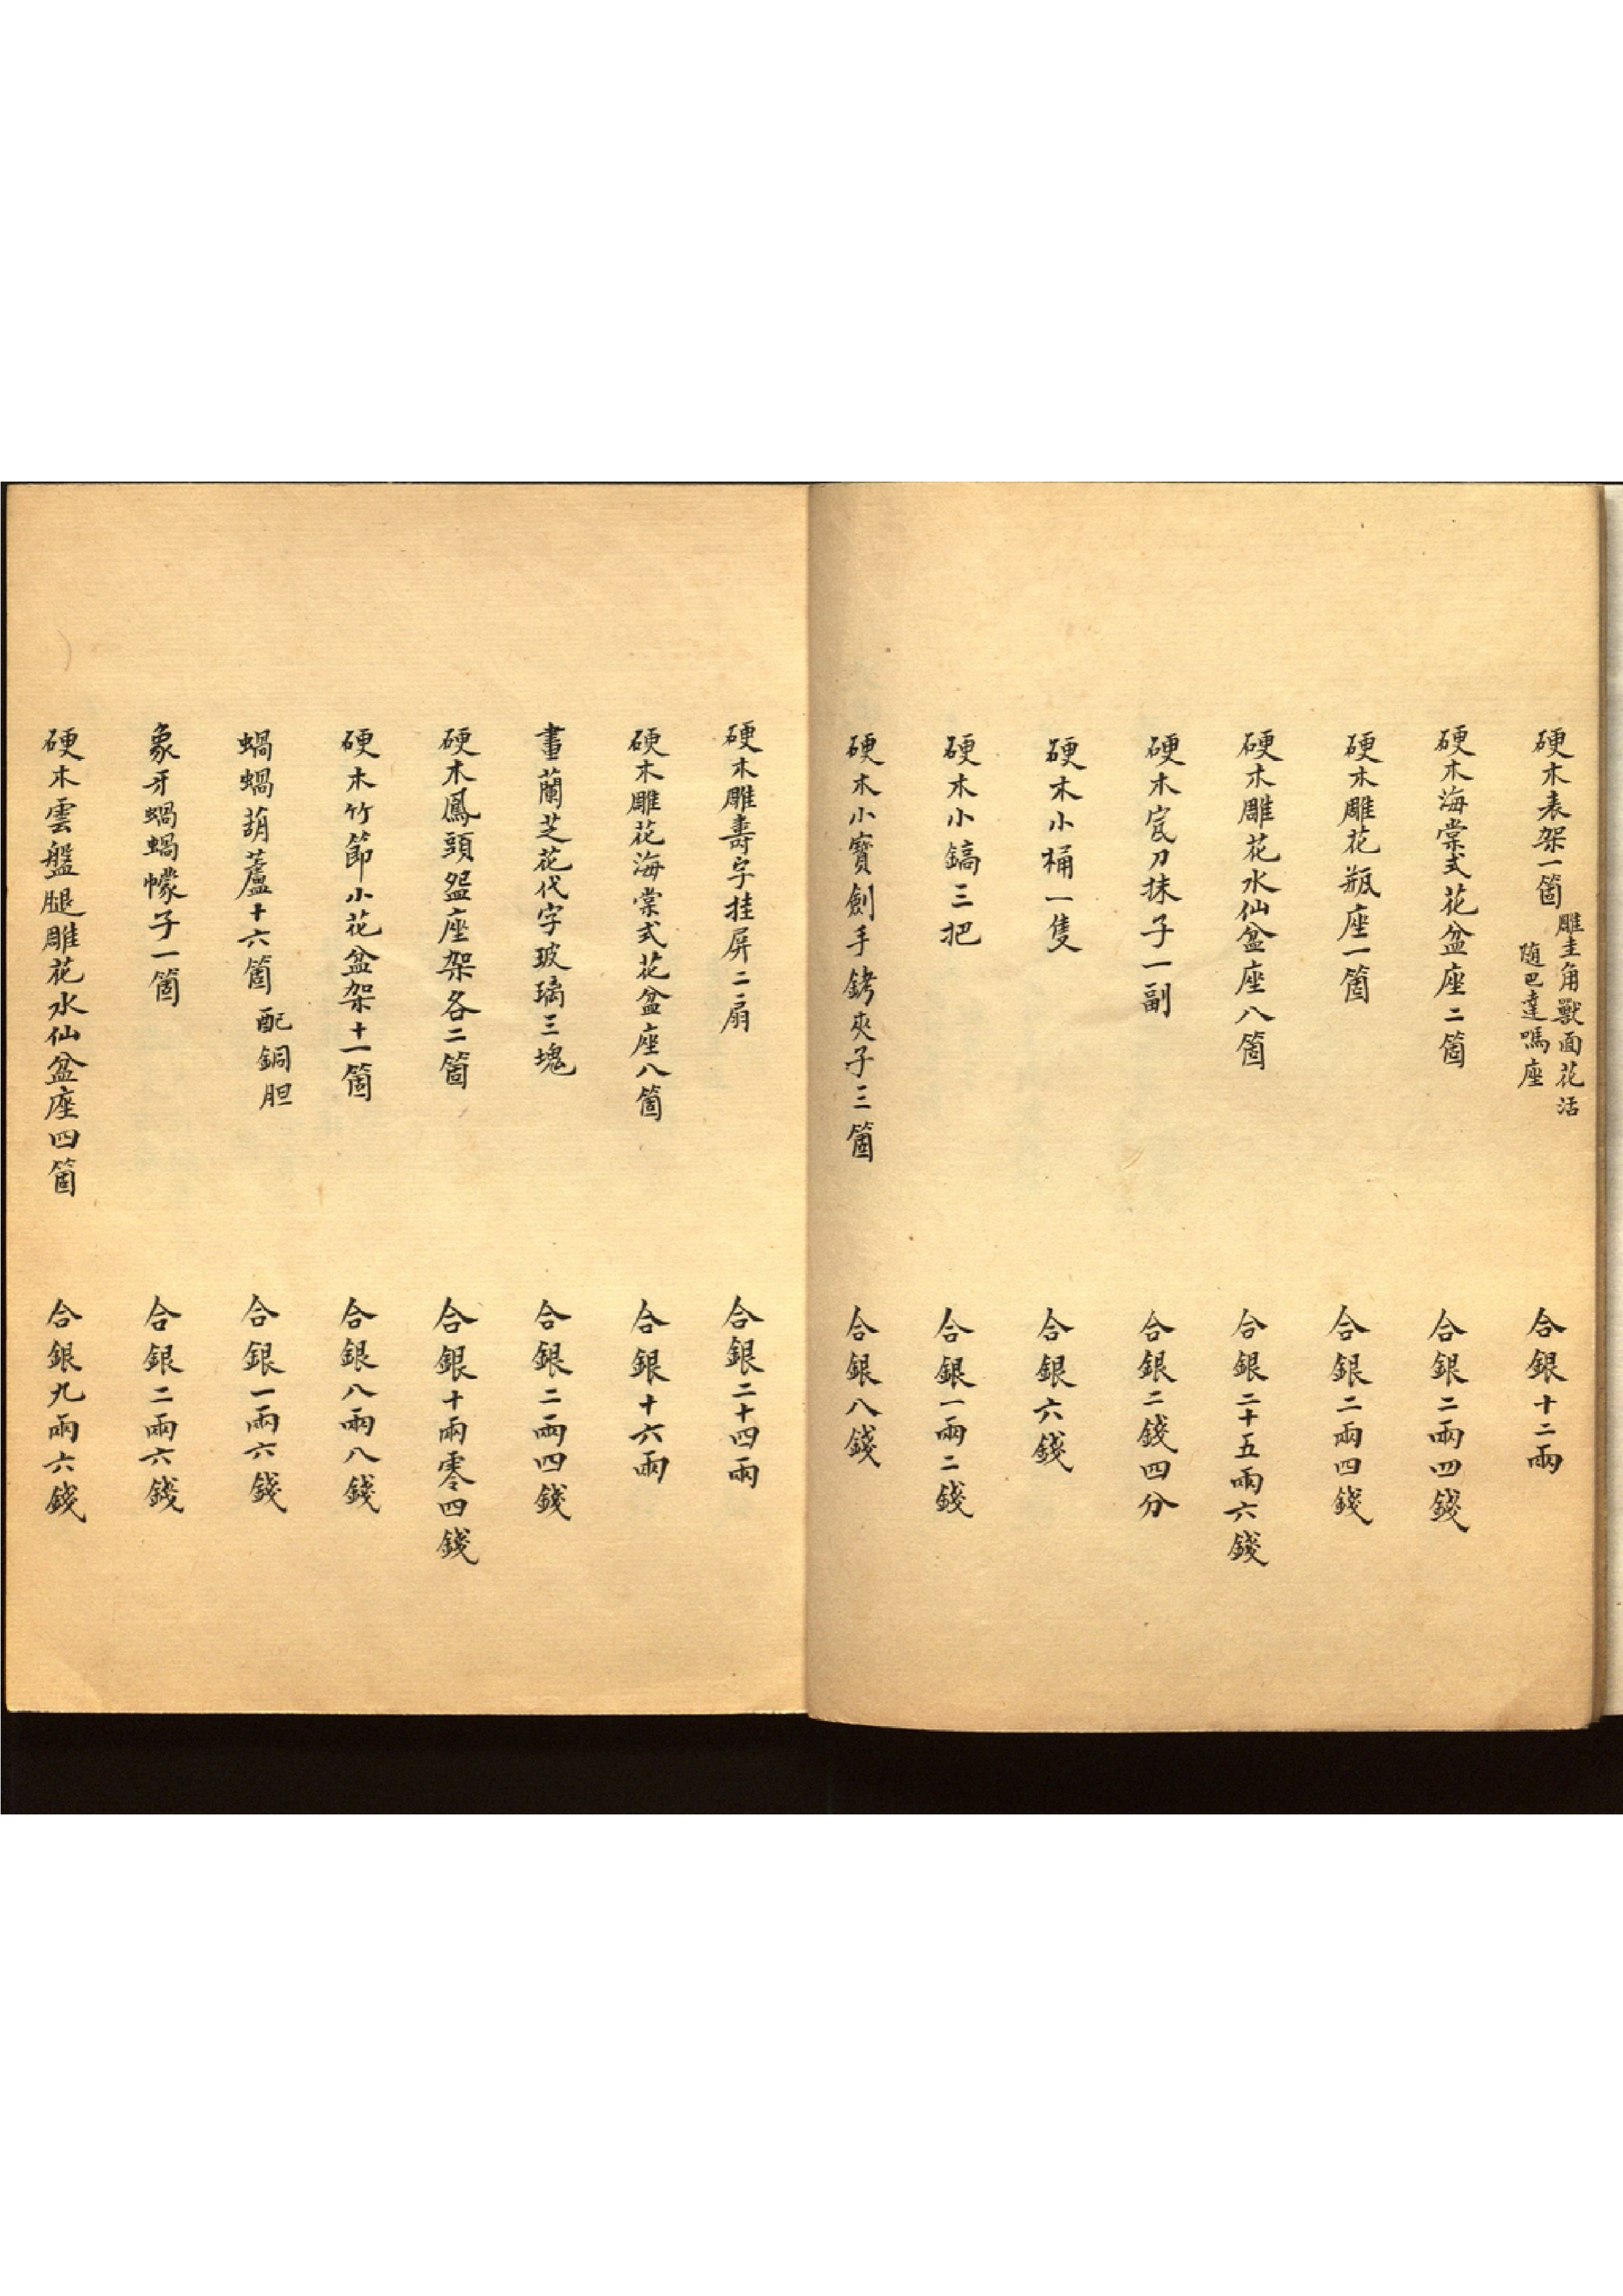 硬木表架一箇
雕圭角獸面花活
随巴達嗎座
合銀十二兩
硬木海棠式花盆座二箇
合銀二兩四錢
硬木雕花瓶座一箇
合銀二兩四錢
硬木雕花水仙盆座八箇
合銀二十五兩六錢
硬木瓦刀抹子一副
合銀二錢四分
硬木小桶一隻
合銀六錢
硬木小鎬三把
合銀一兩二錢
硬木小寶劍手銬夾子三箇
合銀八錢
硬木雕壽字挂屏二扇
合銀二十四兩
硬木雕花海棠式花盆座八箇
合銀十六兩
畫蘭芝花代字玻璃三塊
合銀二兩四錢
硬木鳳頭盌座架各二箇
合銀十兩零四錢
硬木竹節小花盆架十一箇
合銀八兩八錢
蝈蝈葫蘆十六箇 配銅胆
合銀一兩六錢
象牙蝈蝈幪子一箇
合銀二兩六錢
硬木雲盤腿雕花水仙盆座四箇
合銀九兩六錢